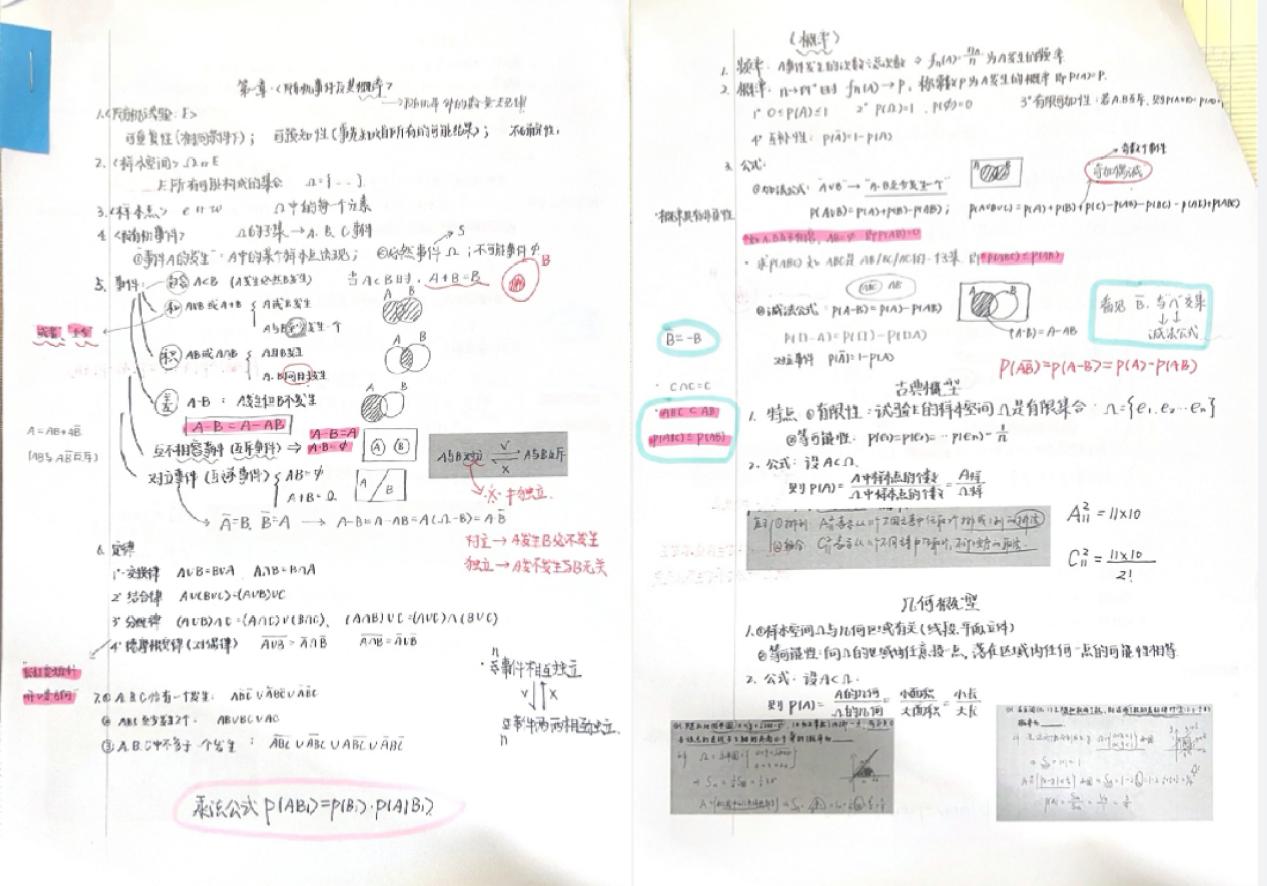 第一章.〈随机事件及其概率〉
→随机事件的数量规律
1.〈随机试验：E〉
可重复性(相同条件下)； 可预知性(事先知道所有的可能结果)； 不确定性.
2.〈样本空间〉Ω
E所有可能构成的集合 Ω={…}.
3.〈样本点〉e w Ω中的每个元素
4.〈随机事件〉 Ω的子集→A. B. C事件
①"事件A的发生"·A中的某个样本点出现； ②必然事件Ω；不可能事件φ
S
5. 事件： 包含 A⊂B (A发生必然B发生) 当A⊂B时，A+B=B
B
和 A∪B或A+B { A或B发生
A与B至少发生一个
积 AB或A∩B { A且B发生
A.B同时发生
差 A-B： A发生但B不发生
A-B=A-AB
A=AB+AB̅
(AB与AB̅互斥)
互不相容事件(互斥事件) ⇒ A-B=A
A·B=φ
A与B对立 ⇌ A与B互斥
对立事件(互逆事件) { AB=φ
A+B=Ω
≠独立.
A̅=B. B̅=A → A-B=A-AB=A(Ω-B)=AB̅
对立→A发生B必不发生
独立→A发不发生与B无关
6. 定律
1°交换律 A∪B=B∪A. A∩B=B∩A
2°结合律 A∪(B∪C)=(A∪B)∪C
3°分配律 (A∪B)∩C=(A∩C)∪(B∩C)、 (A∩B)∪C=(A∪C)∩(B∪C)
4°德摩根定律(对偶律) A̅∪̅B̅=A̅∩B̅ A̅∩̅B̅=A̅∪B̅
n
事件相互独立
V ↓↑ X
事件两两相互独立.
n
7.① A.B.C恰有一个发生： AB̅C̅∪A̅BC̅∪A̅B̅C
② ABC至少发生2个. AB∪BC∪AC
③ A.B.C中不多于一个发生： A̅B̅C̅∪AB̅C̅∪A̅BC̅∪A̅B̅C
乘法公式 P(ABi)=P(Bi)·P(A|Bi)
〈概率〉
1. 频率：A事件发生的次数÷总次数 ⇒ fn(A)=nA/n 为A发生的频率.
2. 概率：n→很大时 fn(A)→P，称常数P为A发生的概率 即P(A)=P.
1° 0≤P(A)≤1 2° P(Ω)=1. P(φ)=0 3°有限可加性：若A.B互斥，则P(A+B)=P(A)+P(B)
4°互补性：P(A̅)=1-P(A)
3. 公式：
奇数个事件
奇加偶减
①加法公式：A∪B→"A.B至少发生一个"
P(A∪B)=P(A)+P(B)-P(AB)； P(A∪B∪C)=P(A)+P(B)+P(C)-P(AB)-P(BC)-P(AC)+P(ABC)
·概率具有非负性
如A.B互不相容，AB=φ 即P(AB)=0
P(ABC)≤P(AB)
ABC AB
②减法公式：P(A-B)=P(A)-P(AB)
(A-B)=A-AB
P(Ω-A)=P(Ω)-P(A)
对立事件 P(A̅)=1-P(A)
B̅=-B
看见 B̅. 与"∩"交集
↓↓
减法公式
P(AB̅)=P(A-B)=P(A)-P(AB)
·C∩C=C
·ABC⊂AB
P(ABC)≤P(AB)
古典概型
1. 特点 ①有限性：试验E的样本空间Ω是有限集合. Ω={e1,e2…en}
②等可能性：P(e1)=P(e2)=…P(en)=1/n
2. 公式：设A⊂Ω.
则P(A)=A中样本点的个数/Ω中样本点的个数=A样/Ω样
A²₁₁=11×10
C²₁₁=11×10/2!
几何概型
1.①样本空间Ω与几何区域有关(线段.平面.立体)
②等可能性：向Ω的区域内任意投一点，落在区域内任何一点的可能性相等.
2. 公式：设A⊂Ω.
则P(A)=A的几何/Ω的几何=小面积/大面积=小长/大长